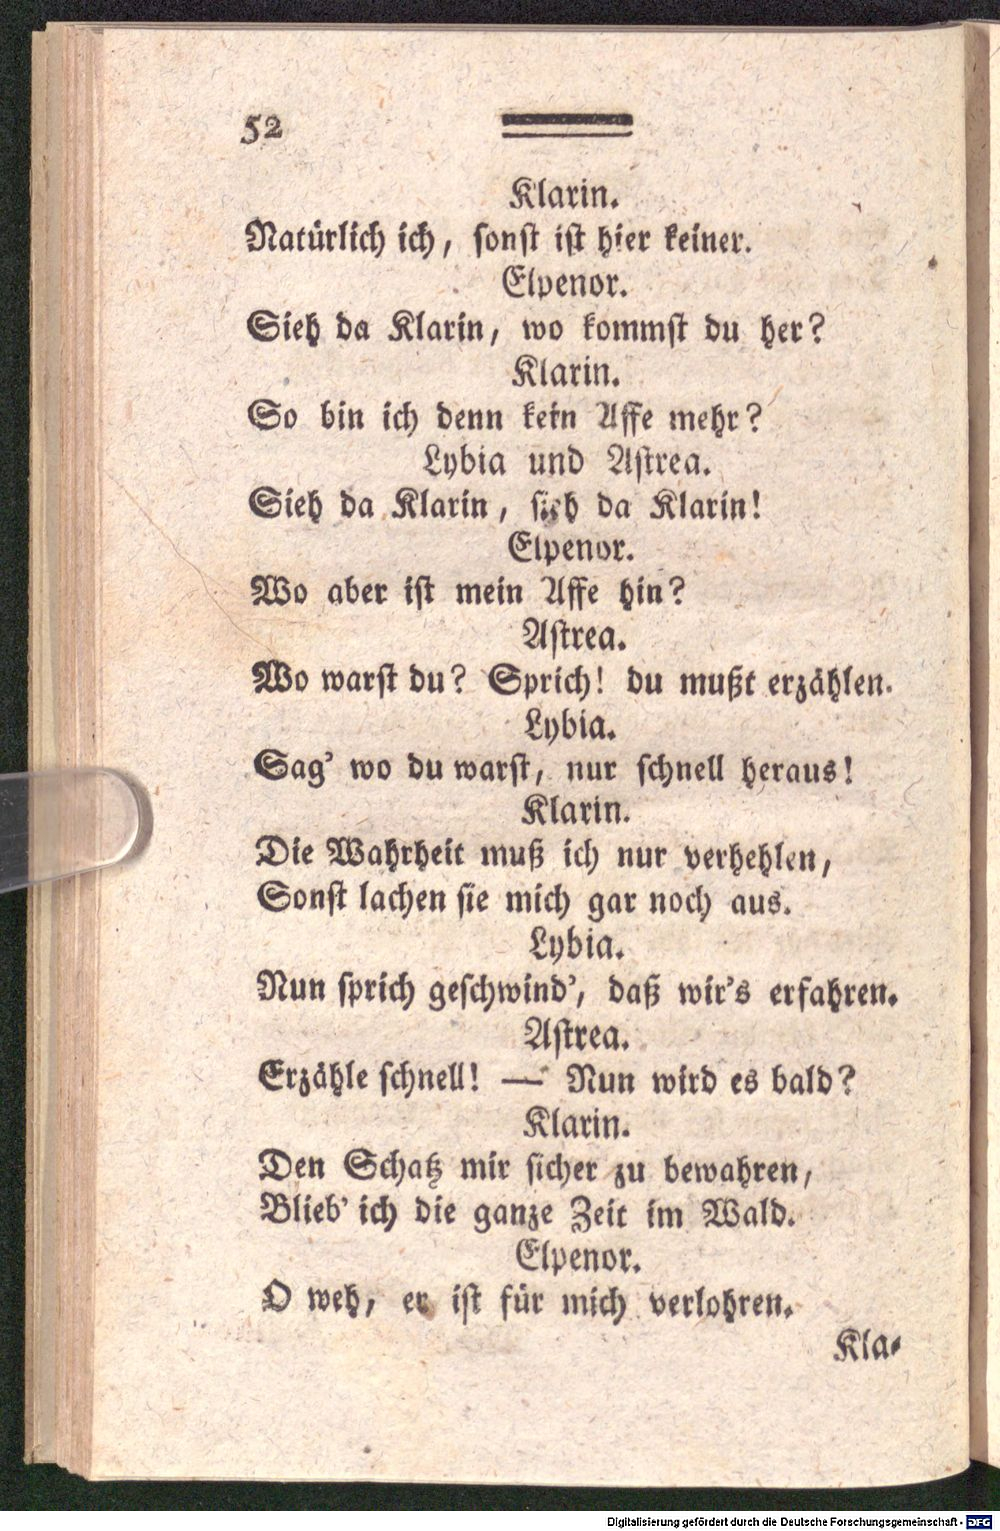 52
Klarin.
Natürlich ich, sonst ist hier keiner.
Elpenor.
Sieh da Klarin, wo kommst du her?
Klarin.
So bin ich denn kein Affe mehr?
Lybia und Astrea.
Sieh da Klarin, sieh da Klarin!
Elpenor.
Wo aber ist mein Affe hin?
Astrea.
Wo warst du? Sprich! du mußt erzählen.
Lybia.
Sag' wo du warst, nur schnell heraus!
Klarin.
Die Wahrheit muß ich nur verhehlen,
Sonst lachen sie mich gar noch aus.
Lybia.
Nun sprich geschwind', daß wir's erfahren.
Astrea.
Erzähle schnell! — Nun wird es bald?
Klarin.
Den Schatz mir sicher zu bewahren,
Blieb' ich die ganze Zeit im Wald.
Elpenor.
O weh, er ist für mich verlohren.
Kla-
Digitalisierung gefördert durch die Deutsche Forschungsgemeinschaft - DFG